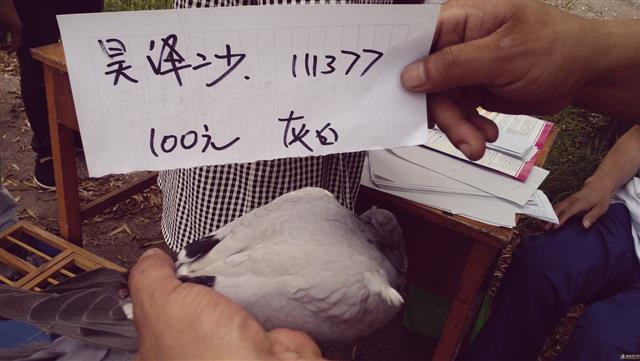 昊泽二少. 111377
100元 灰白